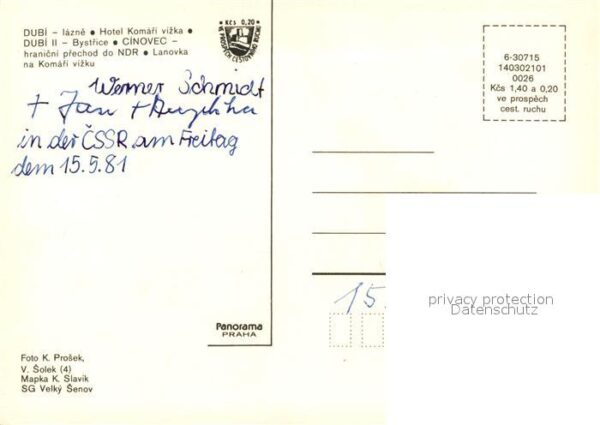 DUBÍ – lázně • Hotel Komáří vížka •
DUBÍ II – Bystřice • CÍNOVEC –
hraniční přechod do NDR • Lanovka
na Komáří vížku
• Kčs 0,20 •
VE PROSPĚCH CESTOVNÍHO RUCHU
6-30715
140302101
0026
Kčs 1,40 a 0,20
ve prospěch
cest. ruchu
Werner Schmidt
+ Jan +
in der ČSSR am Freitag
dem 15.5.81
15.
privacy protection
Datenschutz
Panorama
PRAHA
Foto K. Prošek,
V. Šolek (4)
Mapka K. Slavík
SG Velký Šenov